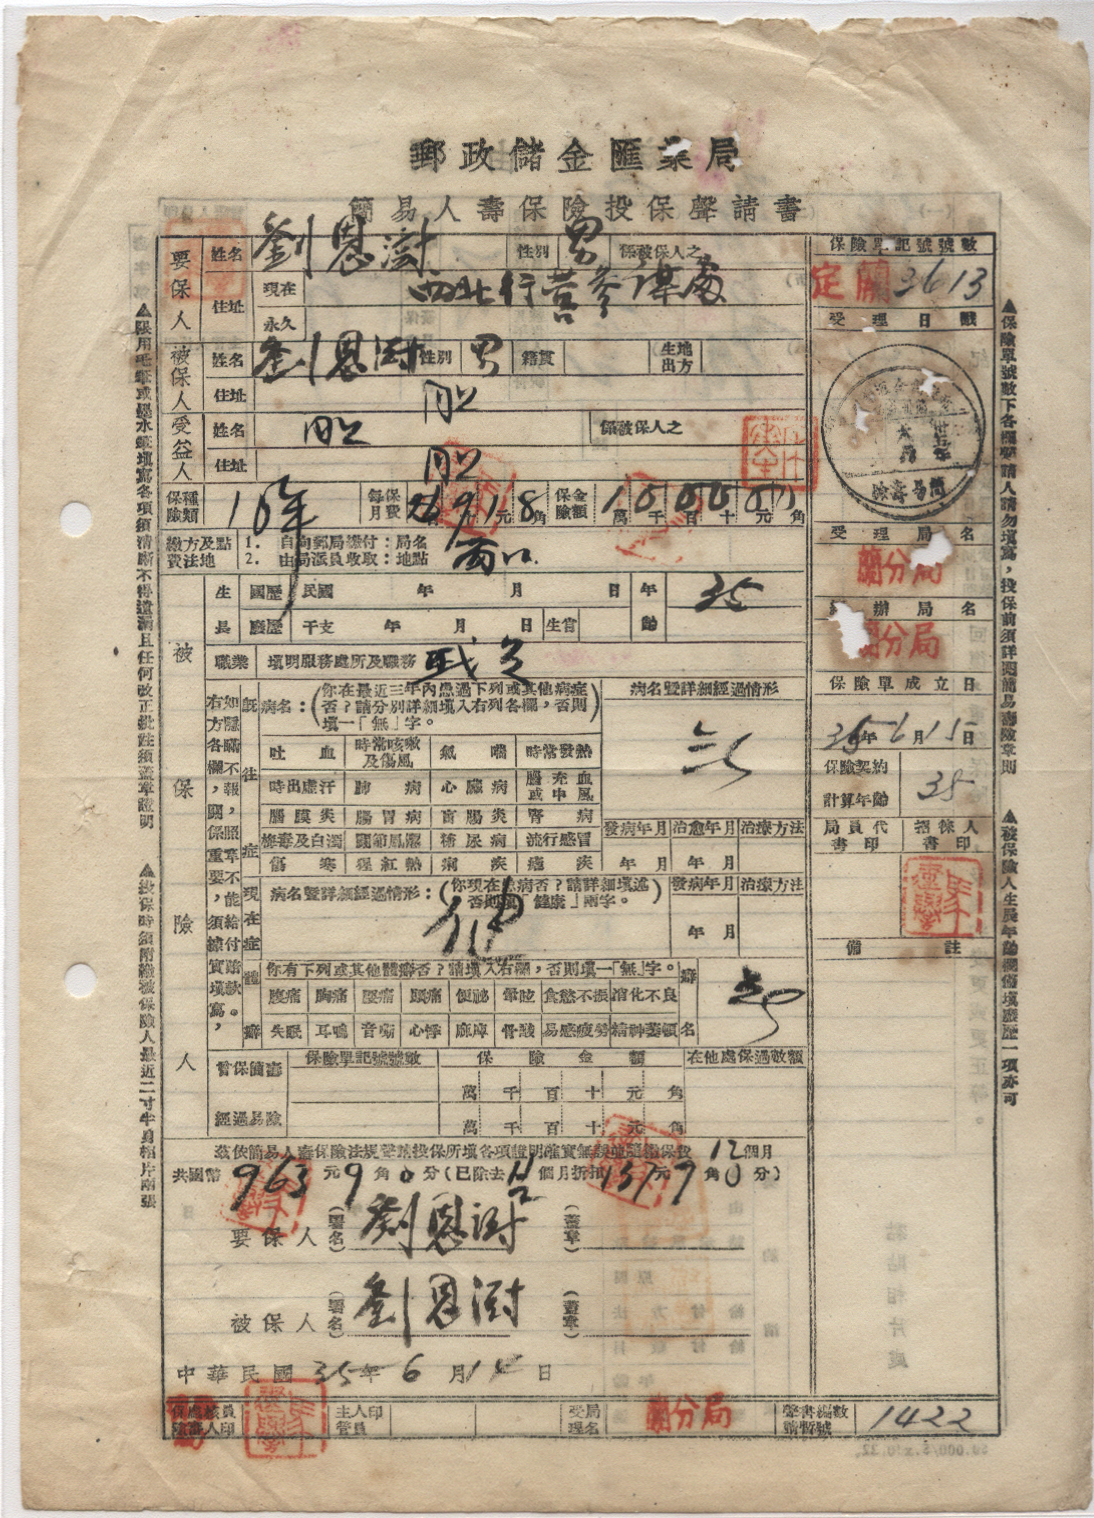 郵政儲金匯業局
簡易人壽保險投保聲請書
要保人 姓名 劉恩澍 性別 男 係被保人之
住址 現在 西北行營參謀處
永久
被保人 姓名 劉恩澍 性別 男 籍貫 生地出方
住址 同上
受益人 姓名 同上 係被保人之
住址 同上
保險種類 10年 每月保費 元 角 保險金額 萬 千 百 十 元 角
繳費方法及地點 1. 自向郵局繳付:局名
2. 由局派員收取:地點
被保險人
生長 國歷 民國 年 月 日 年齡 35
廢歷 干支 年 月 日 生肖
職業 填明服務處所及職務
右方各欄,關係重要,須據實填寫,
如隱瞞不報,照章不能給付賠款。
既往症 病名:(你在最近三年內患過下列或其他病症否?請分別詳細填入右列各欄,否則填一「無」字。
病名暨詳細經過情形
吐血 時常咳嗽及傷風 氣喘 時常發熱
時出虛汗 肺病 心臟病 腦充血或中風
腦膜炎 腸胃病 盲腸炎 腎病
梅毒及白濁 關節風濕 糖尿病 流行感冒
傷寒 猩紅熱 痢疾 瘧疾
發病年月 治愈年月 治療方法
年 月 年 月
現在症 病名暨詳細經過情形:(你現在患病否?請詳細填述否則填「健康」兩字。)
發病年月 治療方法
年 月
體癖 你有下列或其他體癖否?請填入右欄,否則填一「無」字。 癖名
腹痛 胸痛 腰痛 頭痛 便祕 暈眩 食慾不振 消化不良
失眠 耳鳴 音啞 心悸 麻痺 骨酸 易感疲勞 精神萎頓
曾保簡壽經過易險 保險單記號號數 保險金額 在他處保過數額
萬 千 百 十 元 角
萬 千 百 十 元 角
茲依簡易人壽保險法規聲請投保所填各項證明確實無誤 12 個月
共國幣 963 元 9 角 0 分(已除去 個月折扣 元 9 角 0 分)
要保人 (署名) 劉恩澍 (蓋章)
被保人 (署名) 劉恩澍 (蓋章)
中華民國 35 年 6 月 日
主管人員印 受理局名 蘭分局 聲請書編號暫數 1422
保險單記號號數
定蘭 3613
受理日戳
簡易壽險
受理局名
蘭分局
辦局名
蘭分局
保險單成立日
35年6月15日
保險契約計算年齡 35
局員代書印 招徠人書印
備註
▲保險單號數下各欄聲請人請勿填寫,投保前須詳閱簡易壽險章則
▲被保險人生辰年齡欄僅填廢歷一項亦可
▲限用毛筆或墨水筆填寫各項須清晰不得遺漏且任何改正批註須蓋章證明
▲投保時須附繳被保險人最近二寸半身相片兩張